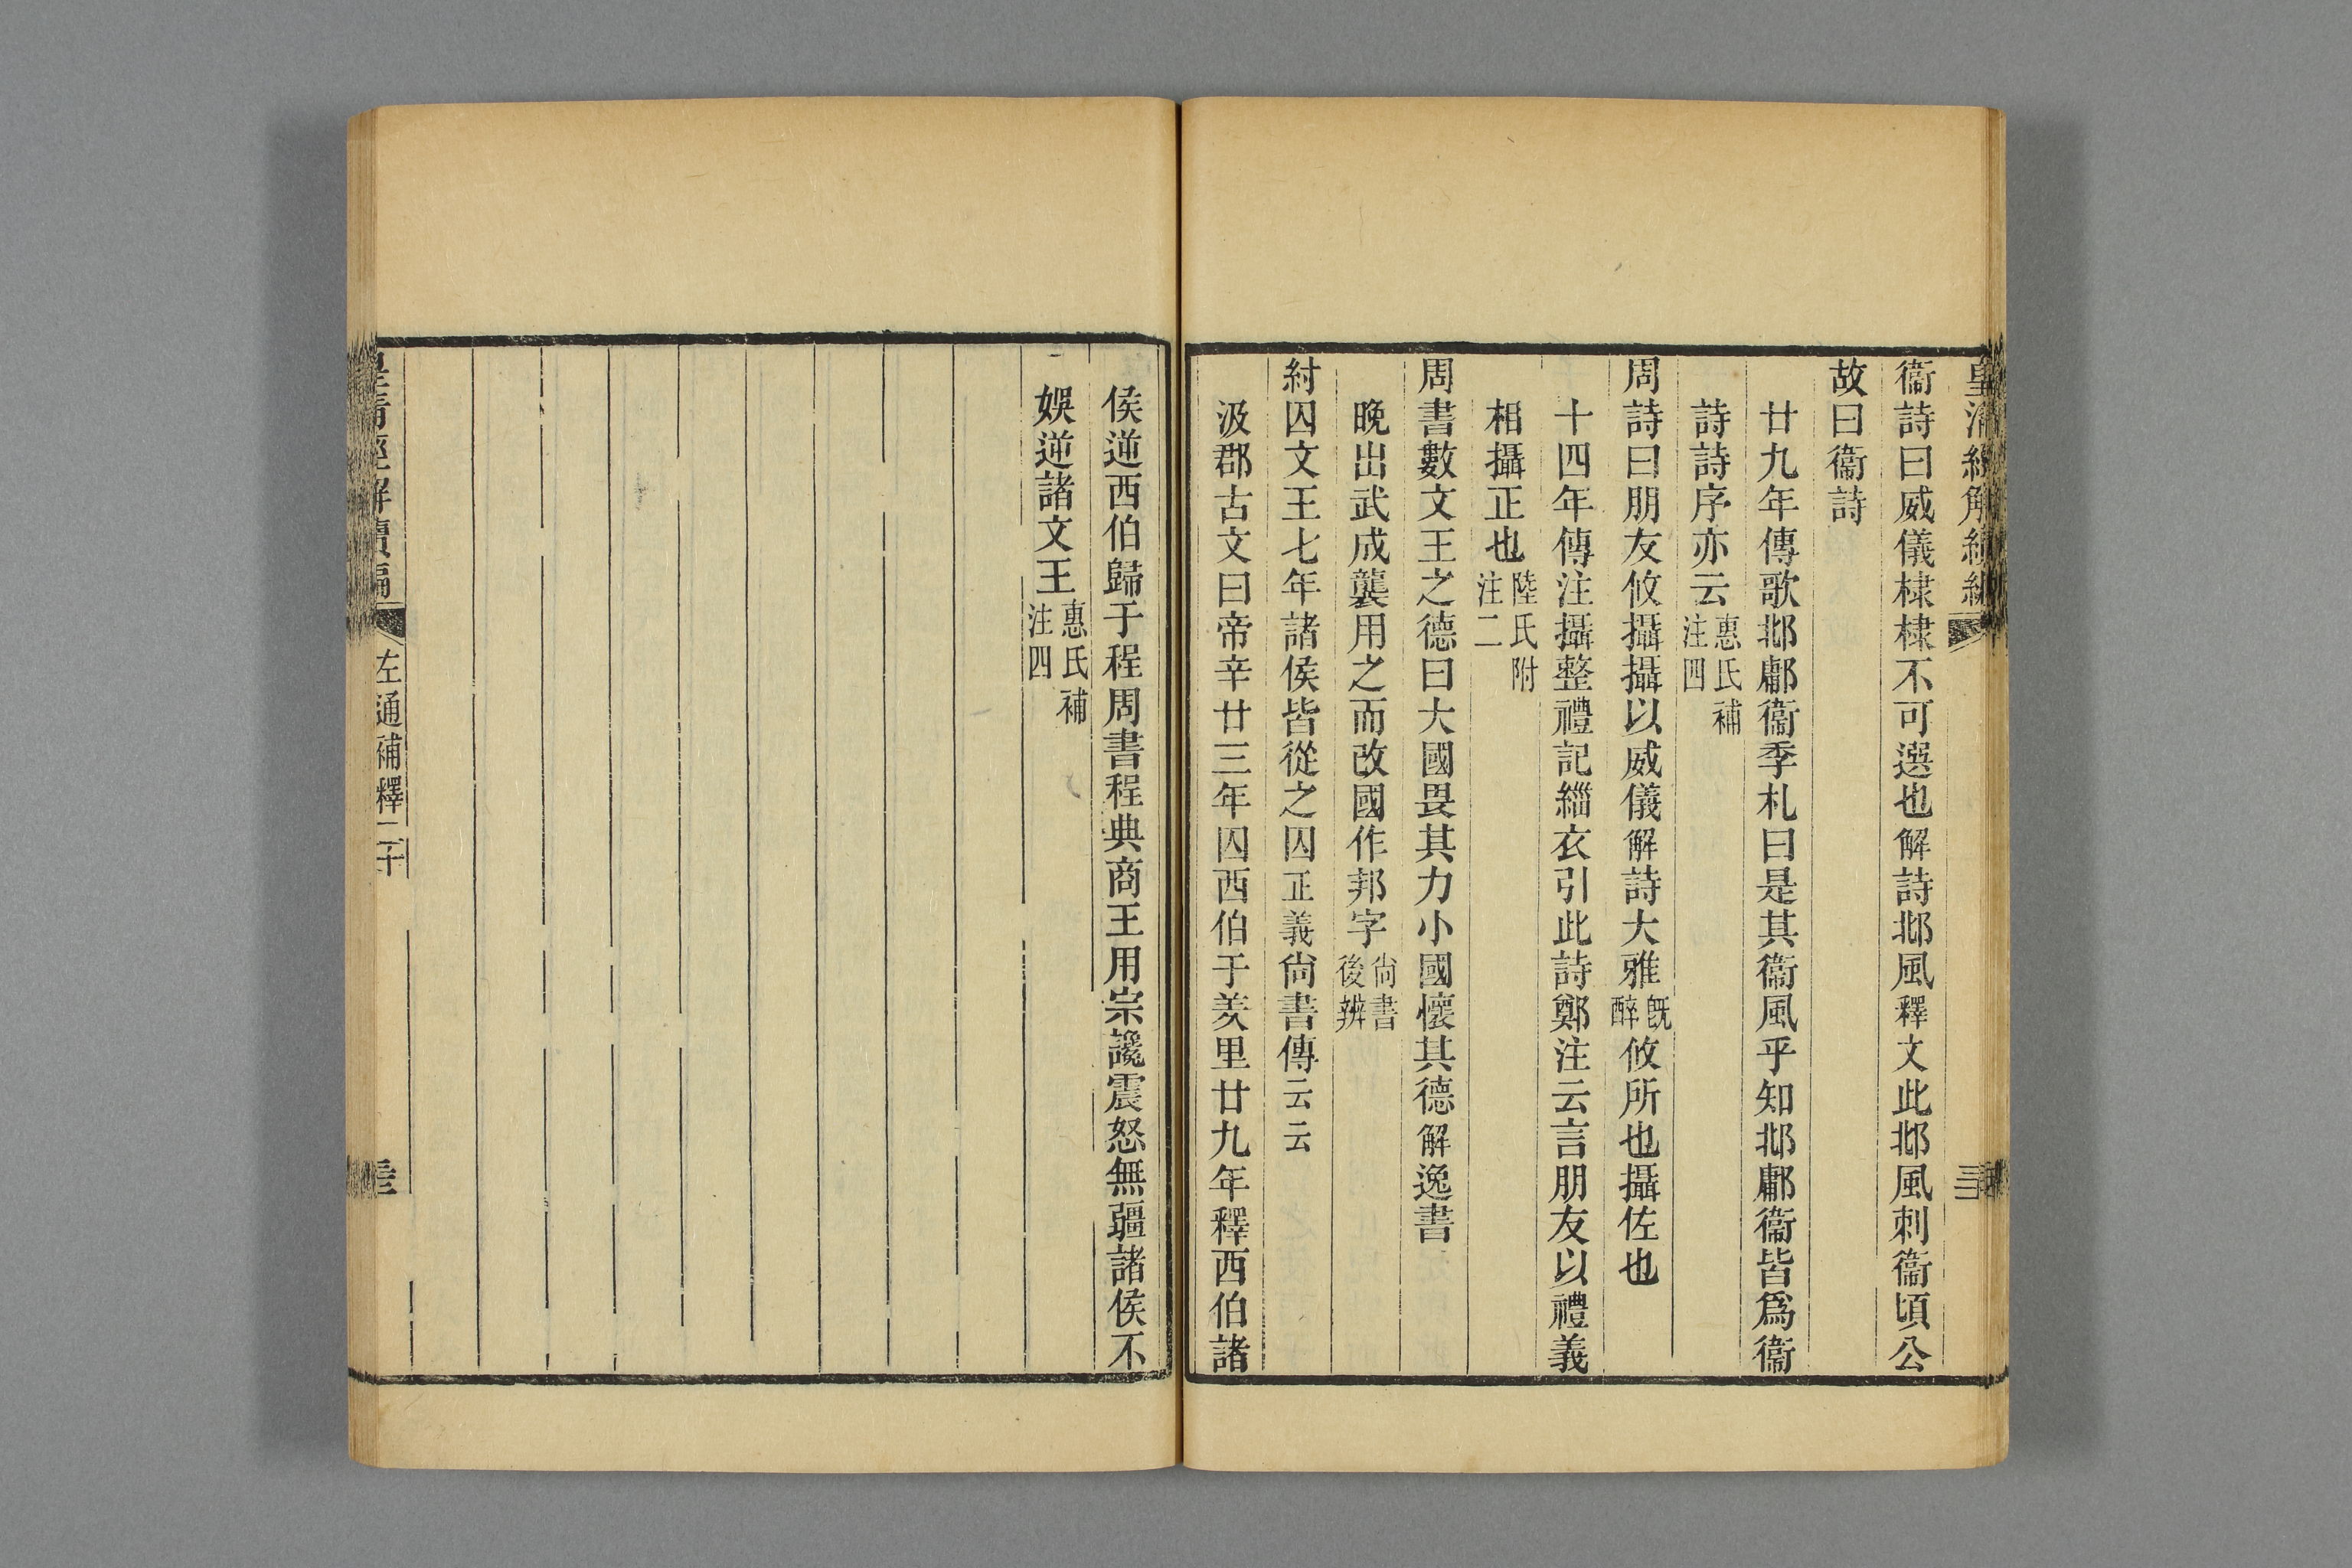 衞詩曰威儀棣棣不可選也解詩邶風釋文此邶風刺衞頃公
故曰衞詩
廿九年傳歌邶鄘衞季札曰是其衞風乎知邶鄘衞皆爲衞
詩詩序亦云惠氏補注四
周詩曰朋友攸攝攝以威儀解詩大雅旣醉攸所也攝佐也
十四年傳注攝整禮記緇衣引此詩鄭注云言朋友以禮義
相攝正也陸氏附注二
周書數文王之德曰大國畏其力小國懷其德解逸書
晚出武成襲用之而改國作邦字尙書後辨
紂囚文王七年諸侯皆從之囚正義尙書傳云云
汲郡古文曰帝辛廿三年囚西伯于羑里廿九年釋西伯諸
侯逆西伯歸于程周書程典商王用宗讒震怒無疆諸侯不
娛逆諸文王惠氏補注四
皇清經解續編
左通補釋二十